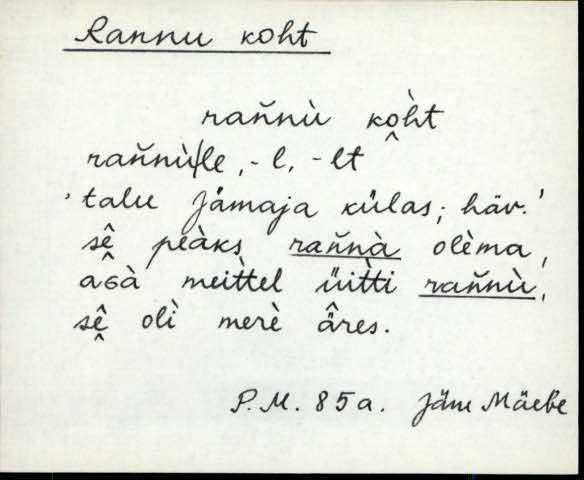 Rannu koht
rań̆nù ko̭h̀t
rańnù/le, -l, -lt
'talu Jämaja külas; häv.'
sḙ̂ peàks rańnà olèma,
aɢà meit̀tel üit̀ti rańnù,
sḙ̂ olì merè ä̂res.
P.M. 85a. Jäm Mäebe